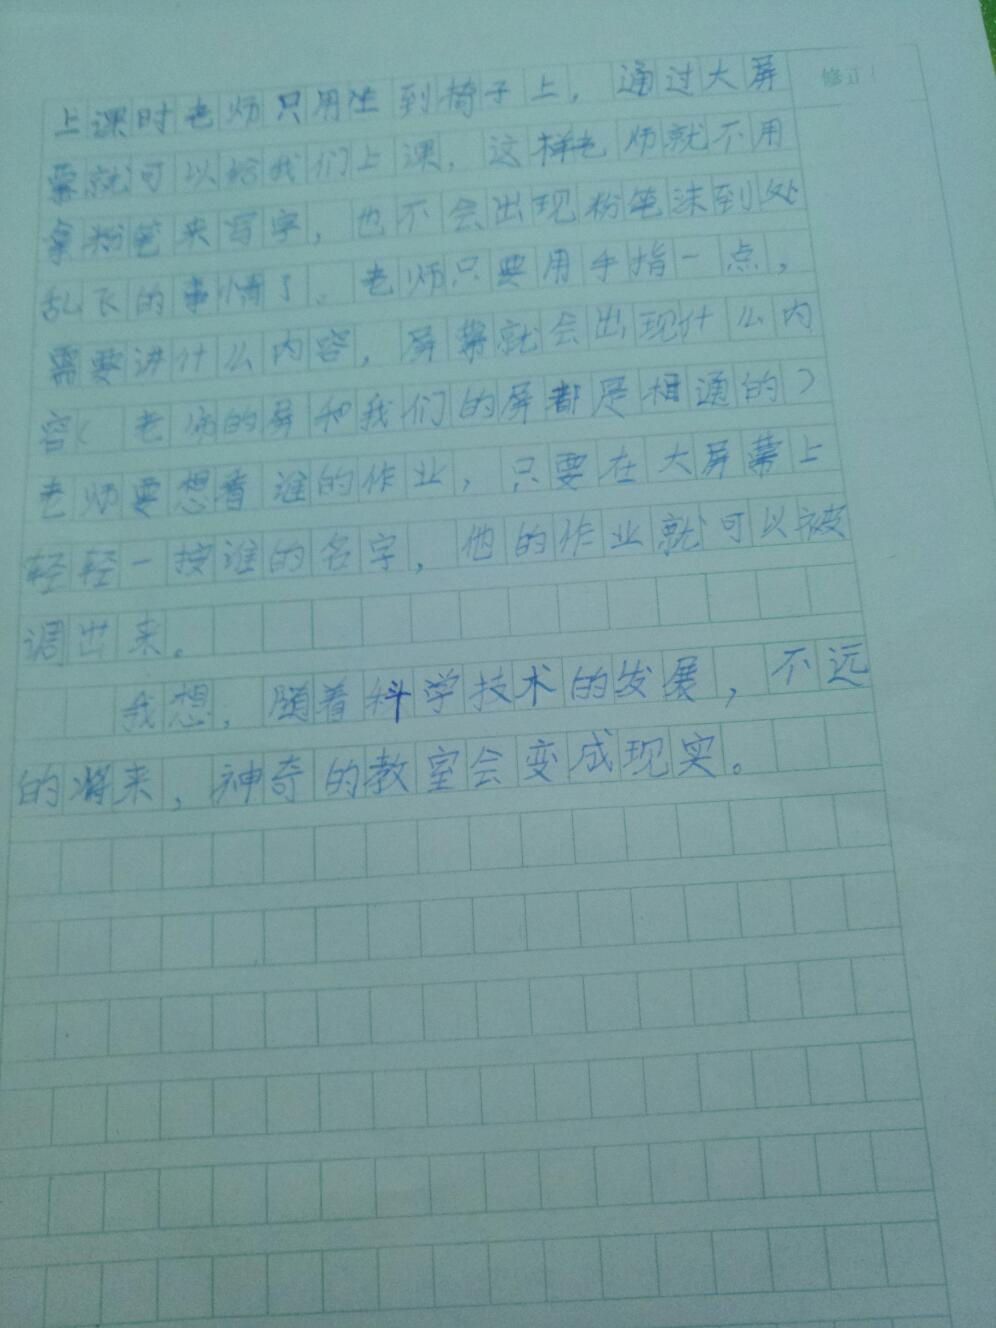 上课时老师只用坐到椅子上，通过大屏
幕就可以给我们上课，这样老师就不用
拿粉笔来写字，也不会出现粉笔沫到处
乱飞的事情了。老师只要用手指一点，
需要讲什么内容，屏幕就会出现什么内
容（老师的屏和我们的屏都是相通的）
老师要想看谁的作业，只要在大屏幕上
轻轻一按谁的名字，他的作业就可以被
调出来。
我想，随着科学技术的发展，不远
的将来，神奇的教室会变成现实。
修正